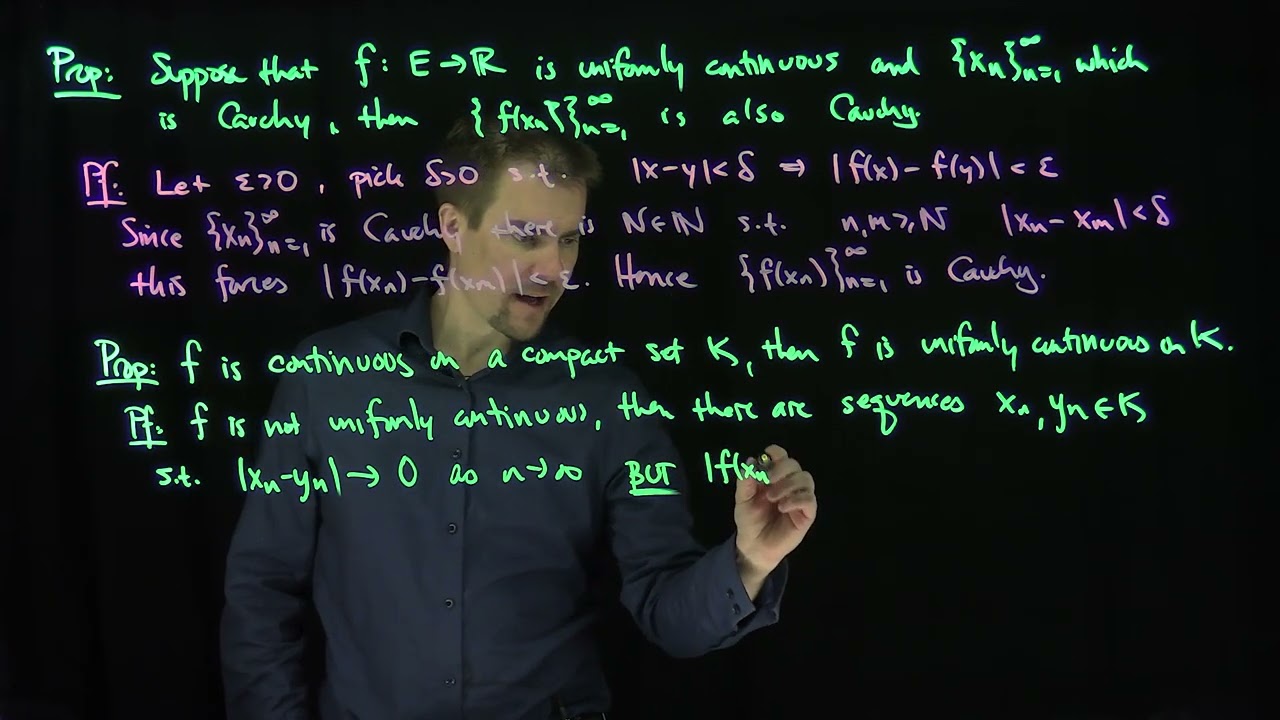 Prop: Suppose that f: E→ℝ is uniformly continuous and {xₙ}ₙ₌₁^∞ which
is Cauchy, then {f(xₙ)}ₙ₌₁^∞ is also Cauchy.
Pf: Let ε>0, pick δ>0 s.t. |x-y|<δ ⇒ |f(x)-f(y)|<ε
Since {xₙ}ₙ₌₁^∞ is Cauchy there is N∈ℕ s.t. n,m≥N |xₙ-xₘ|<δ
this forces |f(xₙ)-f(xₘ)|<ε. Hence {f(xₙ)}ₙ₌₁^∞ is Cauchy.
Prop: f is continuous on a compact set K, then f is uniformly continuous on K.
Pf: f is not uniformly continuous, then there are sequences xₙ,yₙ∈K
s.t. |xₙ-yₙ|→0 as n→∞ BUT |f(xₙ